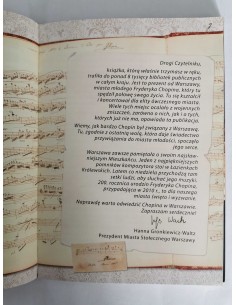 Drogi Czytelniku,
książka, którą właśnie trzymasz w ręku,
trafiła do ponad 8 tysięcy bibliotek publicznych
w całym kraju. Jest to prezent od Warszawy,
miasta młodego Fryderyka Chopina, który tu
spędził połowę swego życia. Tu się kształcił
i koncertował dla elity ówczesnego miasta.
Wiele tych miejsc ocalało z wojennych
zniszczeń, zarówno o nich, jak i o tych,
których już nie ma, opowiada ta publikacja.
Wiemy, jak bardzo Chopin był związany z Warszawą.
Tu, zgodnie z ostatnią wolą, która daje świadectwo
przywiązania do miasta młodości, spoczęło
jego serce.
Warszawa zawsze pamiętała o swoim najsław-
niejszym Mieszkańcu. Jeden z najpiękniejszych
pomników kompozytora stoi w Łazienkach
Królewskich. Latem co niedziela przychodzą tam
setki ludzi, aby słuchać jego muzyki.
200. rocznica urodzin Fryderyka Chopina,
przypadająca w 2010 r., to dla naszego
miasta święto i wyzwanie.
Naprawdę warto odwiedzić Chopina w Warszawie.
Zapraszam serdecznie!
Hanna Gronkiewicz-Waltz
Prezydent Miasta Stołecznego Warszawy